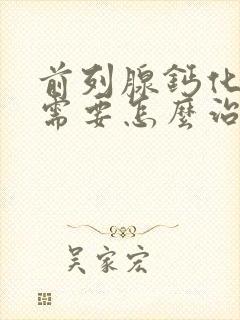 前列腺鈣化
需要怎麼治
吴家宏